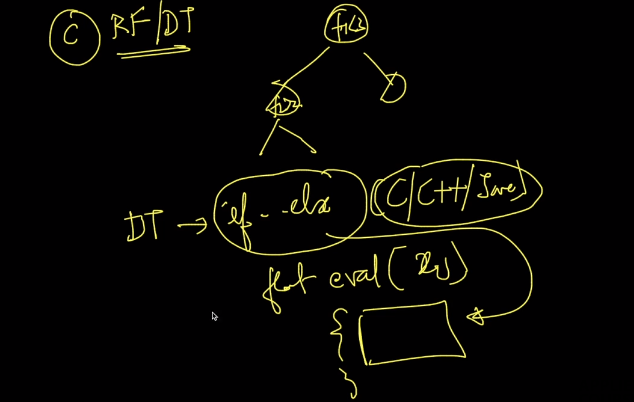 C RF/DT
f1<2
DT → if - - else (C/C++/Java)
float eval( xq )
{
}